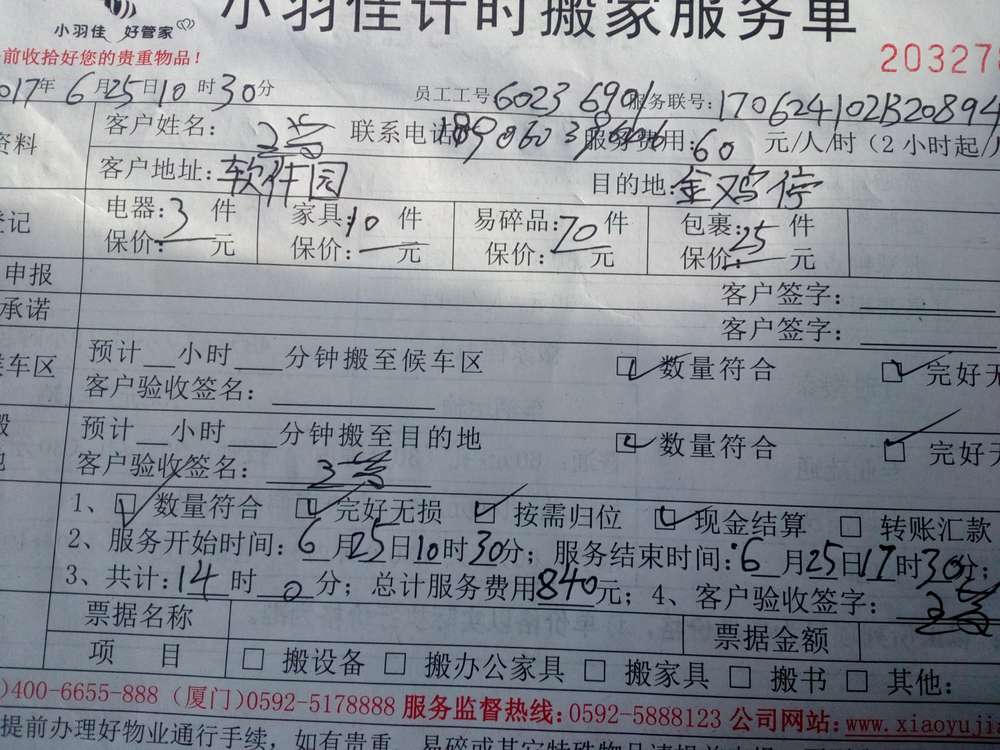 小羽佳计时搬家服务单
小羽佳 好管家
前收拾好您的贵重物品！
203278
017年6月25日10时30分 员工工号6023 6901 服务联号:170624102B20894
资料 客户姓名: 联系电话 服务费用:60元/人/时（2小时起/
客户地址:软件园 目的地:金鸡亭
登记 电器:3件 家具:10件 易碎品:70件 包裹:25件
保价:一元 保价:一元 保价:一元 保价:一元
申报 客户签字:
承诺 客户签字:
车区 预计__小时___分钟搬至候车区 ☑数量符合 ☑完好无
客户验收签名:
搬 预计__小时___分钟搬至目的地 ☑数量符合 ☑完好无
地 客户验收签名:
1、☑数量符合 ☑完好无损 ☑按需归位 ☑现金结算 □转账汇款
2、服务开始时间:6月25日10时30分；服务结束时间:6月25日17时30分；
3、共计:14时0分；总计服务费用840元；4、客户验收签字:
票据名称 票据金额
项 目 □搬设备 □搬办公家具 □搬家具 □搬书 □其他:
)400-6655-888（厦门)0592-5178888 服务监督热线:0592-5888123 公司网站:www.xiaoyujia
提前办理好物业通行手续，如有贵重、易碎或其它特殊物品请提前